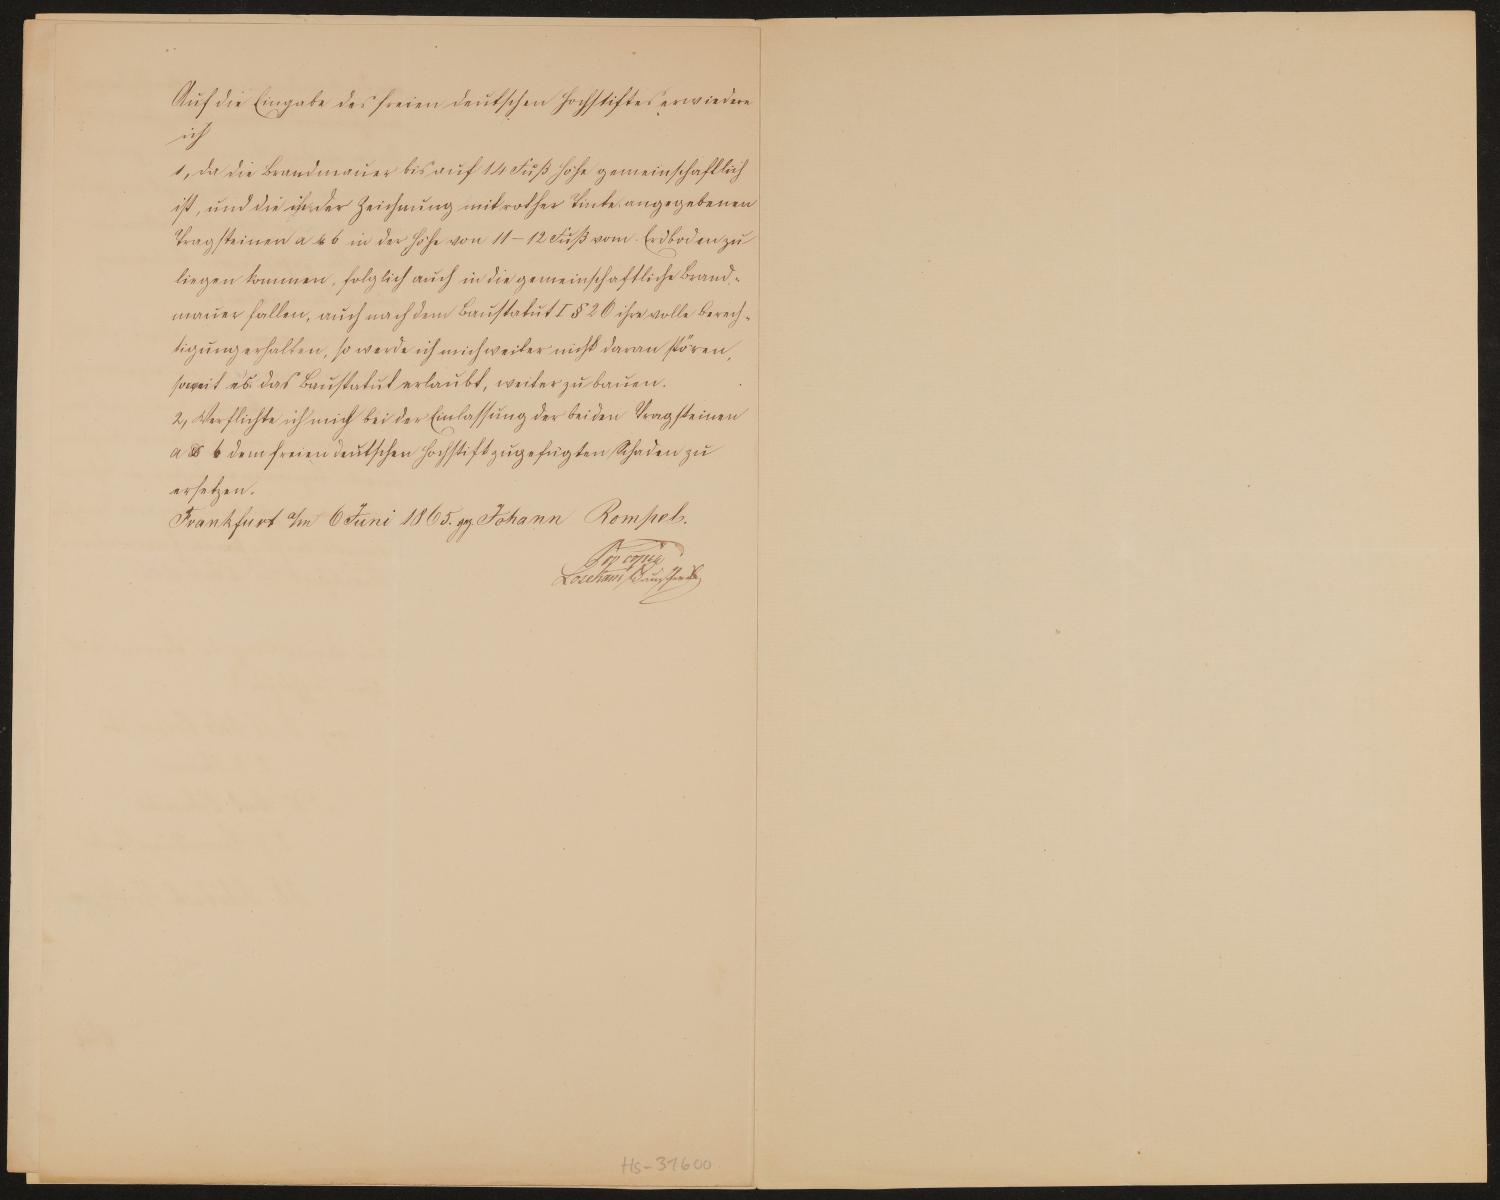 Auf die Eingabe des freien deutschen Hochstiftes erwiedere
ich
1, da die Brandmauer bis auf 14 Fuß Höhe gemeinschaftlich
ist, und die in der Zeichnung mit rother Tinte angegebenen
Tragsteinen a & b in der Höhe von 11 – 12 Fuß vom Erdboden zu
liegen kommen, folglich auch in die gemeinschaftliche Brand-
mauer fallen, auch nach dem Baustatut I § 26 ihre volle Berech-
tigung erhalten, so werde ich mich weiter nicht daran stören,
soweit es das Baustatut erlaubt, weiter zu bauen.
2, Verflichte ich mich bei der Einlassung der beiden Tragsteinen
a & b dem freien deutschen Hochstift zugefügten Schaden zu
ersetzen.
Frankfurt a/m 6 Juni 1865. gz. Johann Rompel.
pro copia
Hs-31600